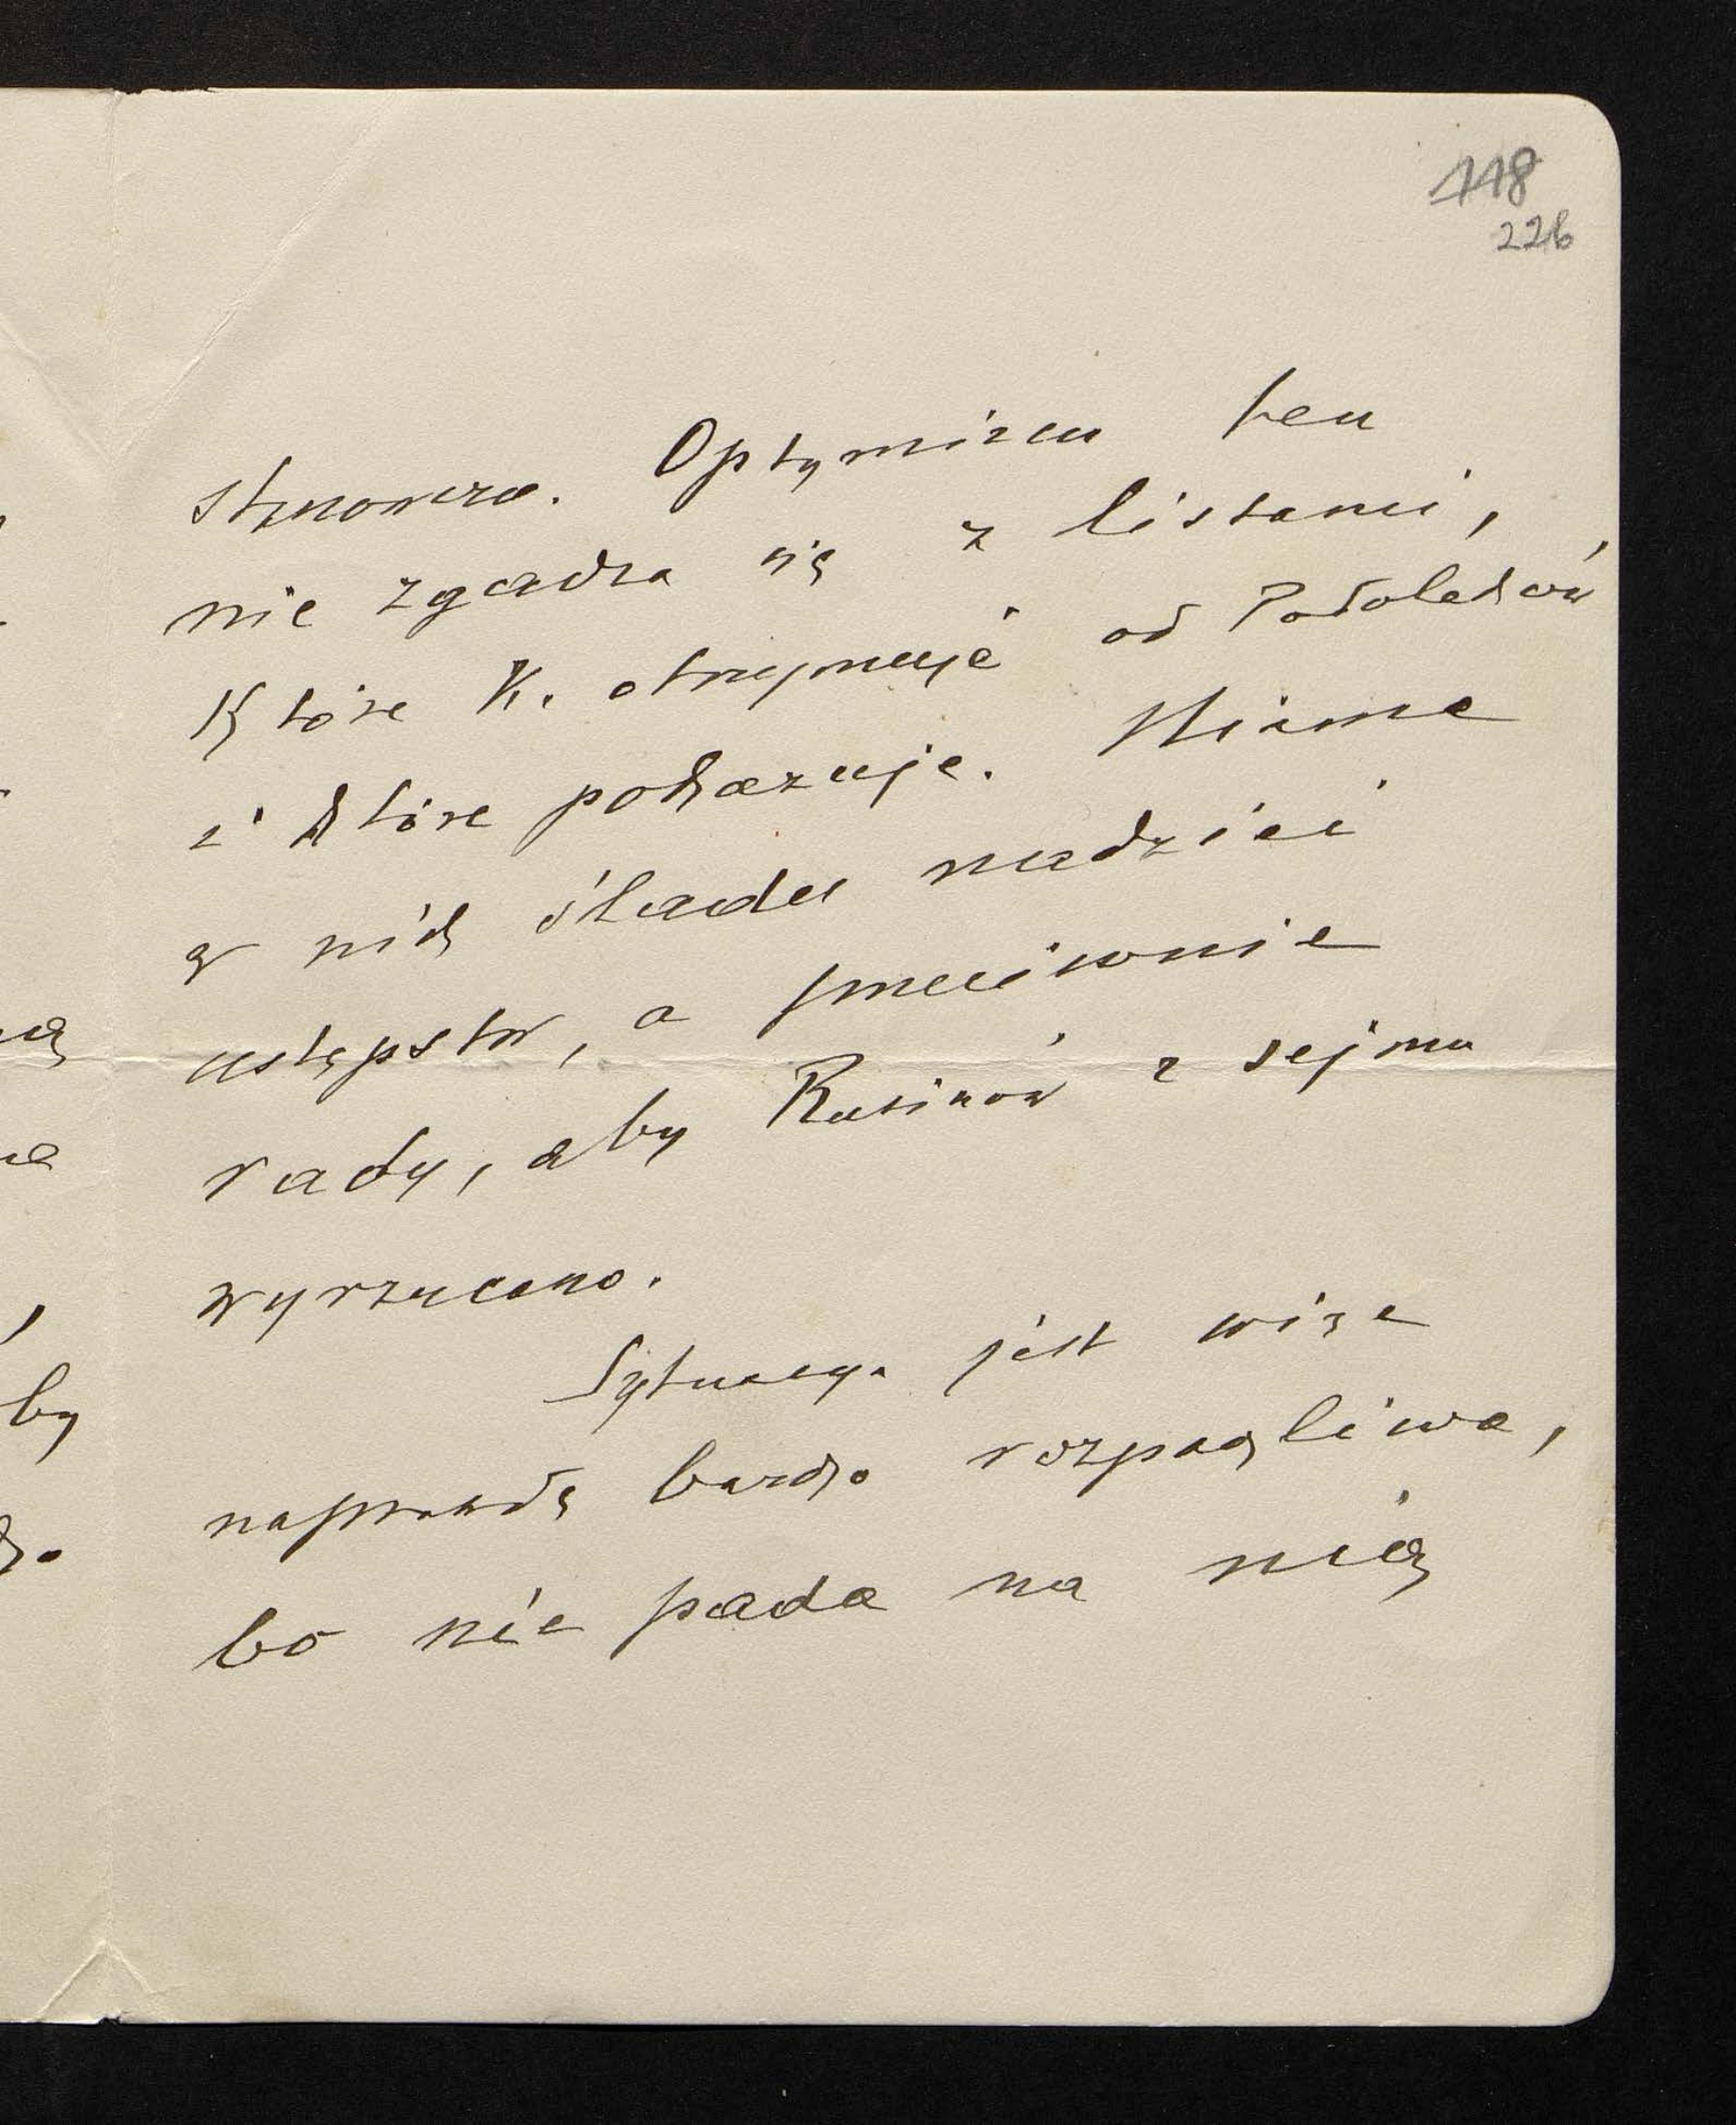 118
226
stanowcza. Optymizm ten
nie zgadza się z listami,
które K. otrzymuje od Podolaków
i które pokazuje. Niema
w nich śladu nadziei
ustępstw, a przeciwnie
rady, aby Rusinów z sejmu
wyrzucono.
Sytuacya jest więc
naprawdę bardzo rozpaczliwa,
bo nie pada na nią
by